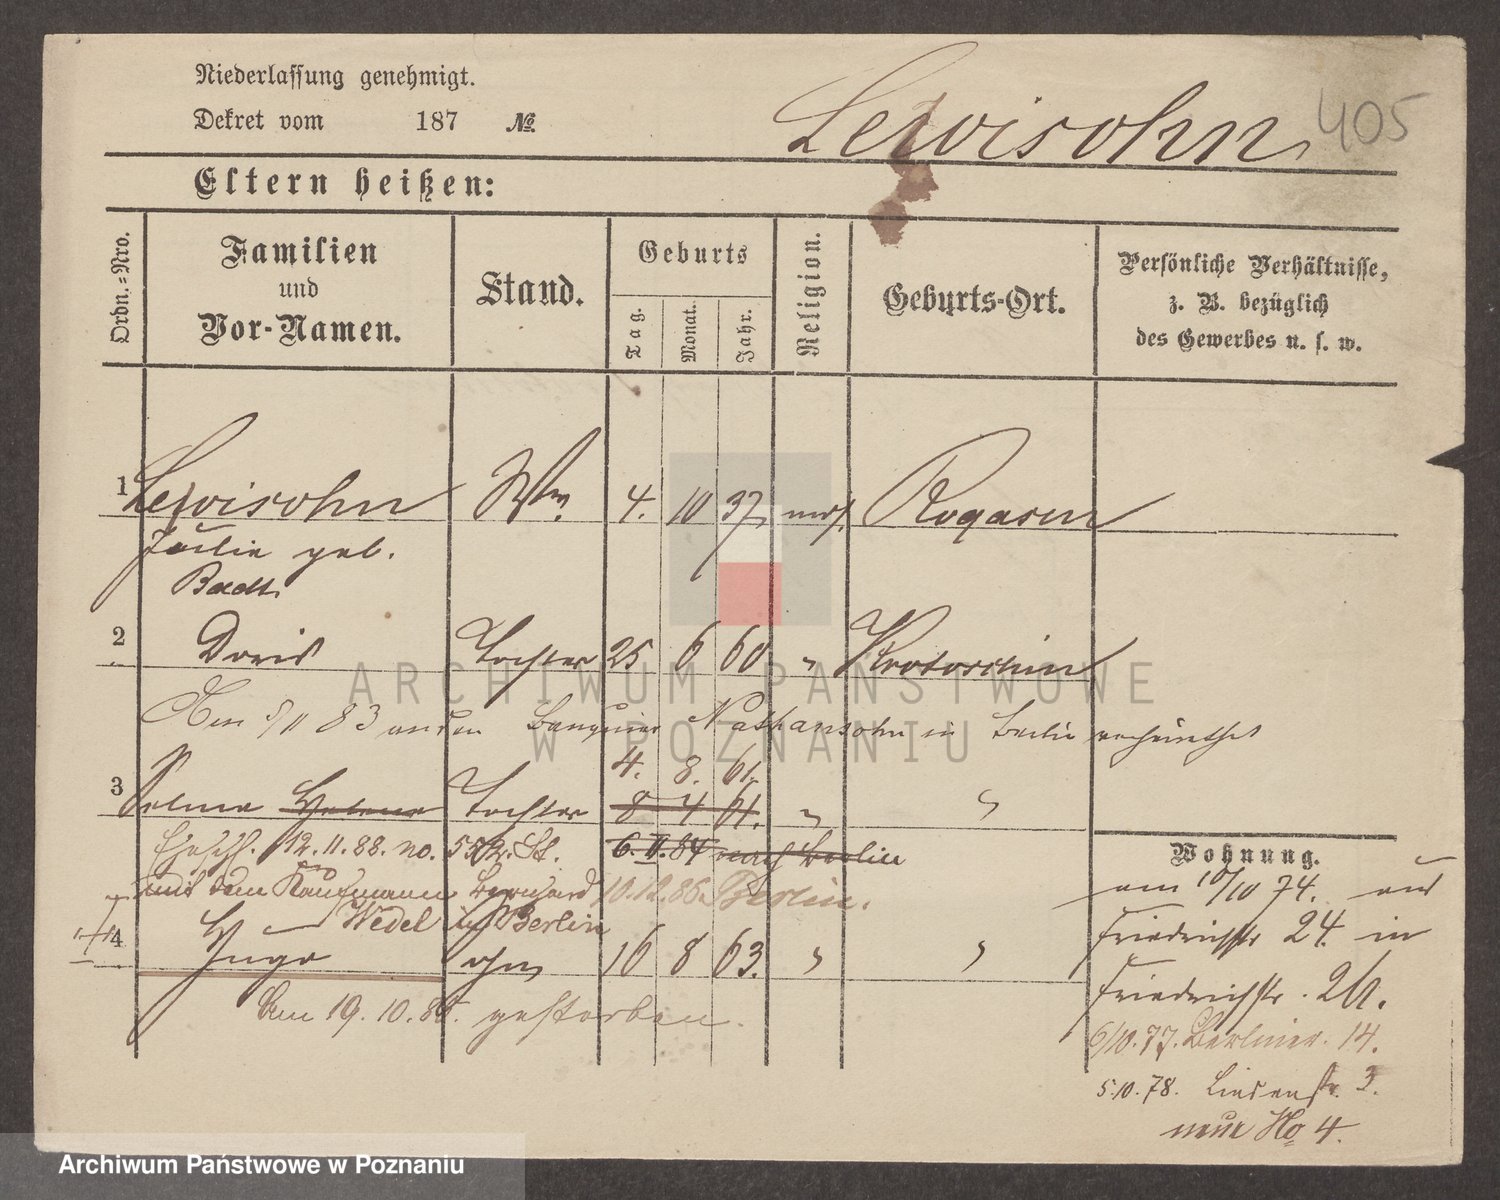 Niederlassung genehmigt.
Dekret vom 187 №
Lewisohn
405
Eltern heißen:
Ordn.-Nro.
Familien
und
Vor-Namen.
Stand.
Geburts
Tag.
Monat.
Jahr.
Religion.
Geburts-Ort.
Persönliche Verhältnisse,
z. B. bezüglich
des Gewerbes u. s. w.
1 Lewisohn Ww. 4. 10 37 mos. Rogasen
Julie geb.
Badt
2 Doris Tochter 25 6 60 " Krotoschin
Den 5/11 83 an den Banquier Nathansohn in Berlin verheirathet
4. 8. 61.
3 Selma Helene Tochter 8 4 61. " "
Eheschl. 12.11.88. no. St. 6. II. 84 nach Berlin
mit dem Kaufmann Bernhard 10.12.86. Berlin.
Wedel in Berlin
4 Hugo ohne 16 8 63. " "
Am 19. 10. gestorben.
Wohnung.
am 10/10 74. aus
Friedrichstr 24. in
Friedrichstr. 26.
6/10.77. Berliner. 14.
5.10.78. Lindenstr. 3.
neue No 4.
ARCHIWUM PAŃSTWOWE
W POZNANIU
Archiwum Państwowe w Poznaniu